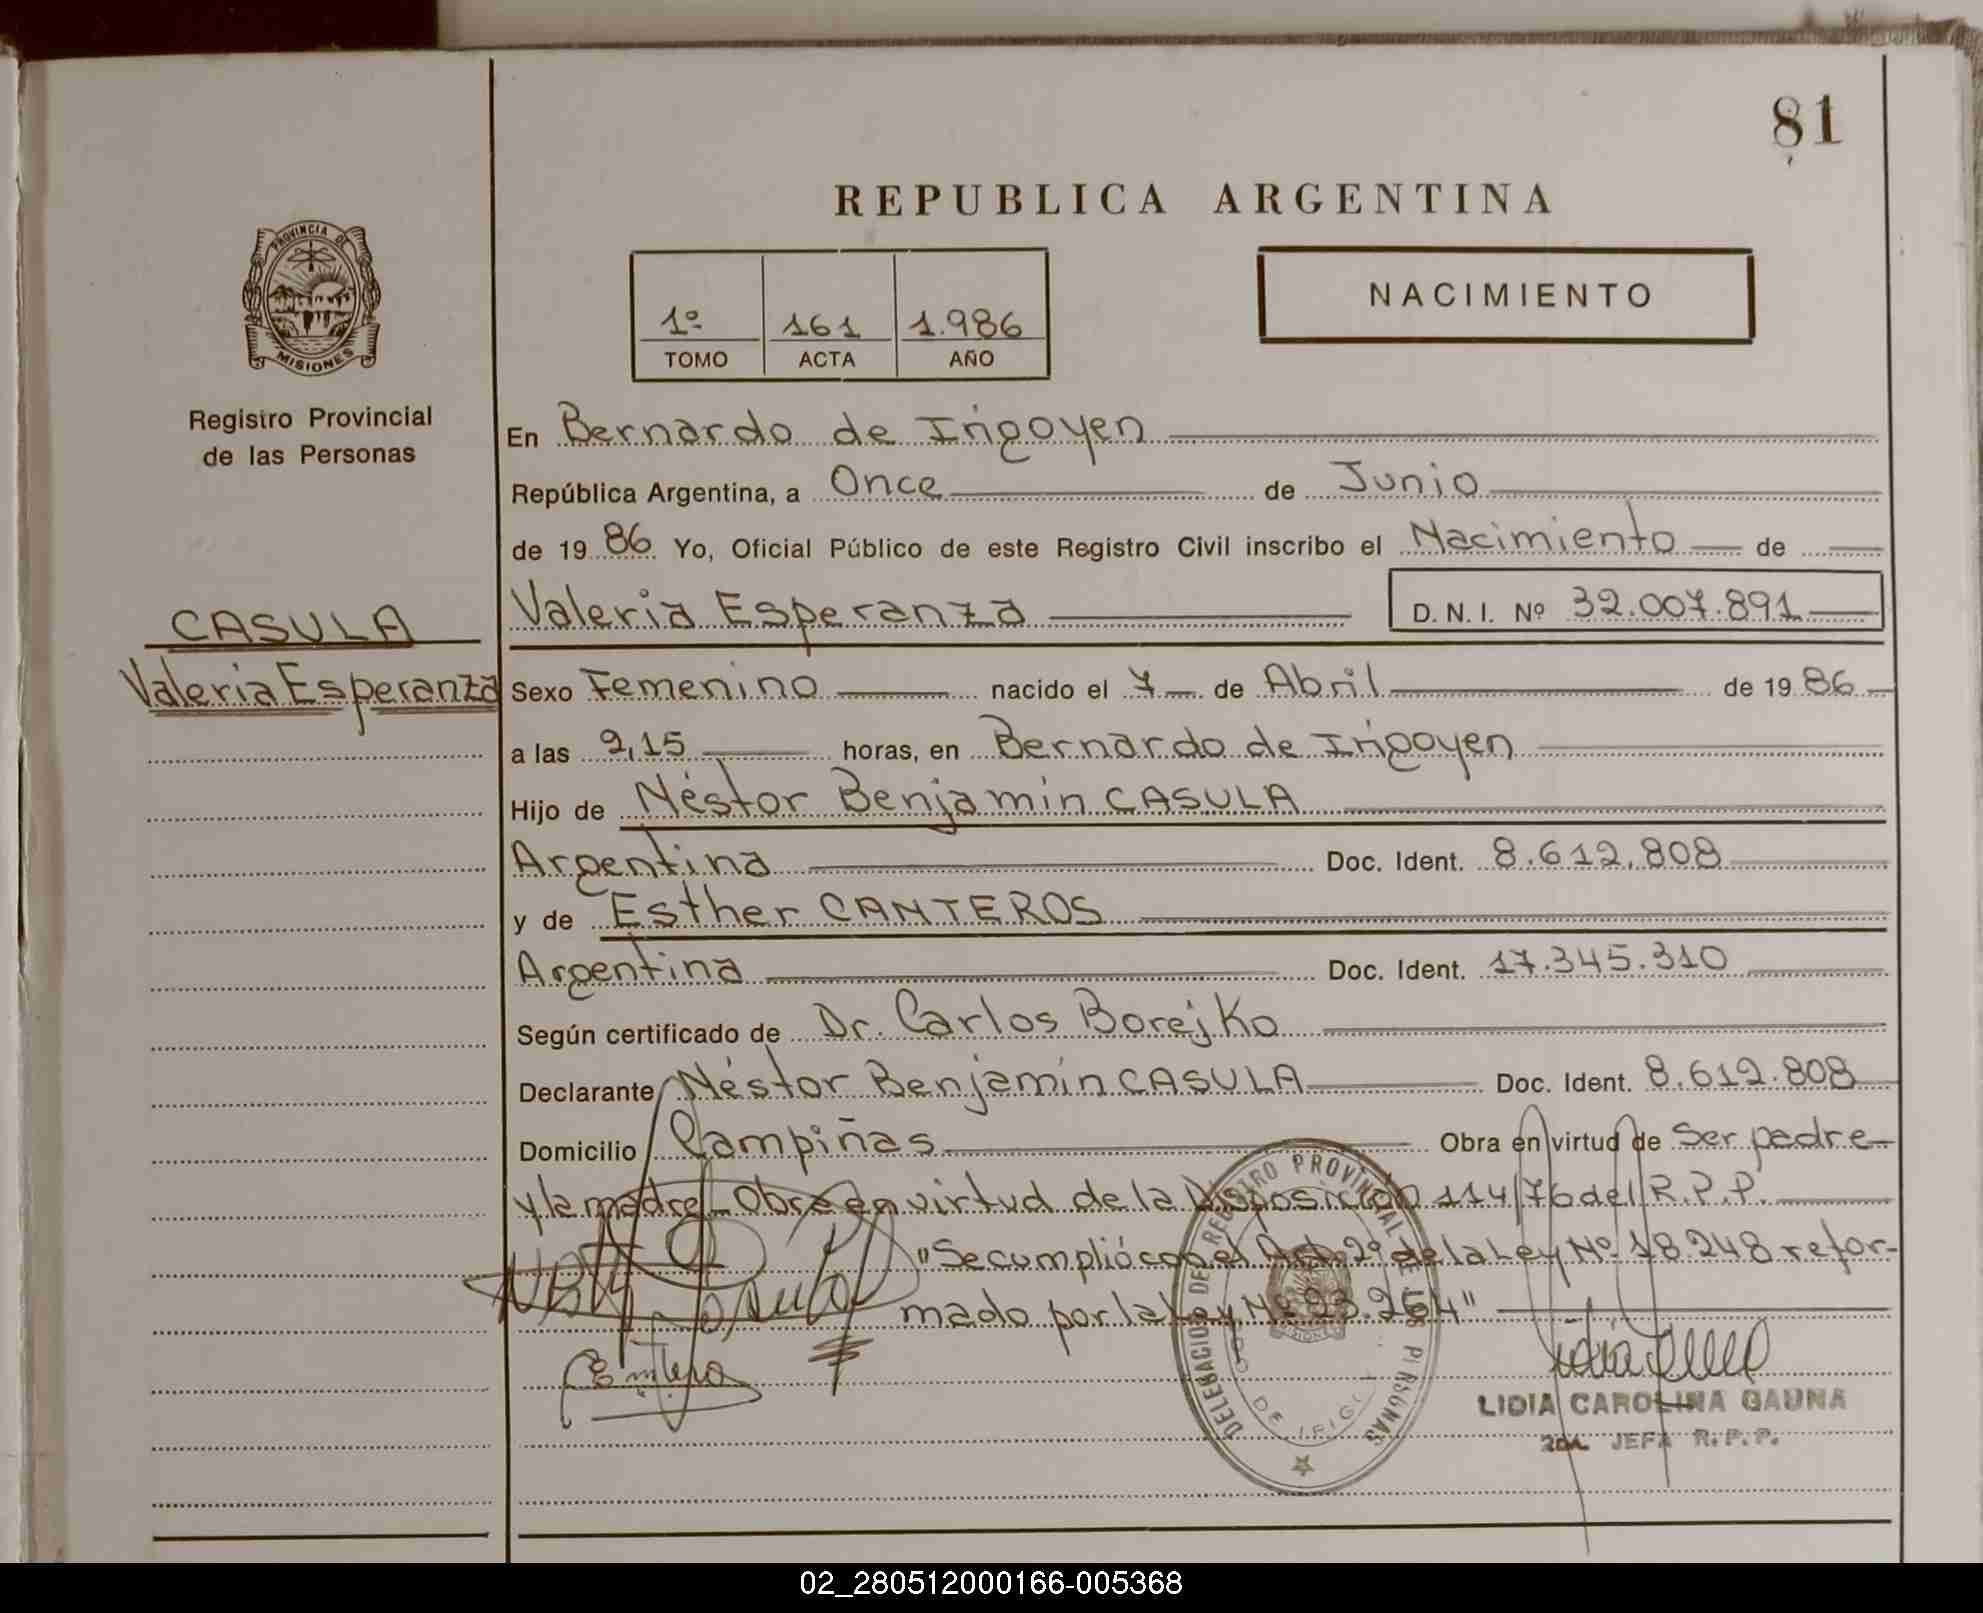 81
REPUBLICA ARGENTINA
PROVINCIA DE
MISIONES
1º 161 1.986
TOMO ACTA AÑO
NACIMIENTO
Registro Provincial
de las Personas
CASULA
Valeria Esperanza
En Bernardo de Irigoyen
República Argentina, a Once de Junio
de 1986 Yo, Oficial Público de este Registro Civil inscribo el Nacimiento de
Valeria Esperanza D. N. I. Nº 32.007.891
Sexo Femenino nacido el 7 de Abril de 1986
a las 9,15 horas, en Bernardo de Irigoyen
Hijo de Néstor Benjamín CASULA
Argentina Doc. Ident. 8.612.808
y de Esther CANTEROS
Argentina Doc. Ident. 17.345.310
Según certificado de Dr. Carlos Borejko
Declarante Néstor Benjamín CASULA Doc. Ident. 8.612.808
Domicilio Campiñas Obra en virtud de Ser padre
y la madre Obra en virtud de la Disposición 114/76 del R.P.P.
"Se cumplió con el Art. 2º de la Ley Nº 18.248 refor-
mado por la Ley Nº 23.264"
DELEGACION DE REGISTRO PROVINCIAL DE LAS PERSONAS
LIDIA CAROLINA GAUNA
2DA. JEFA R.P.P.
02_280512000166-005368